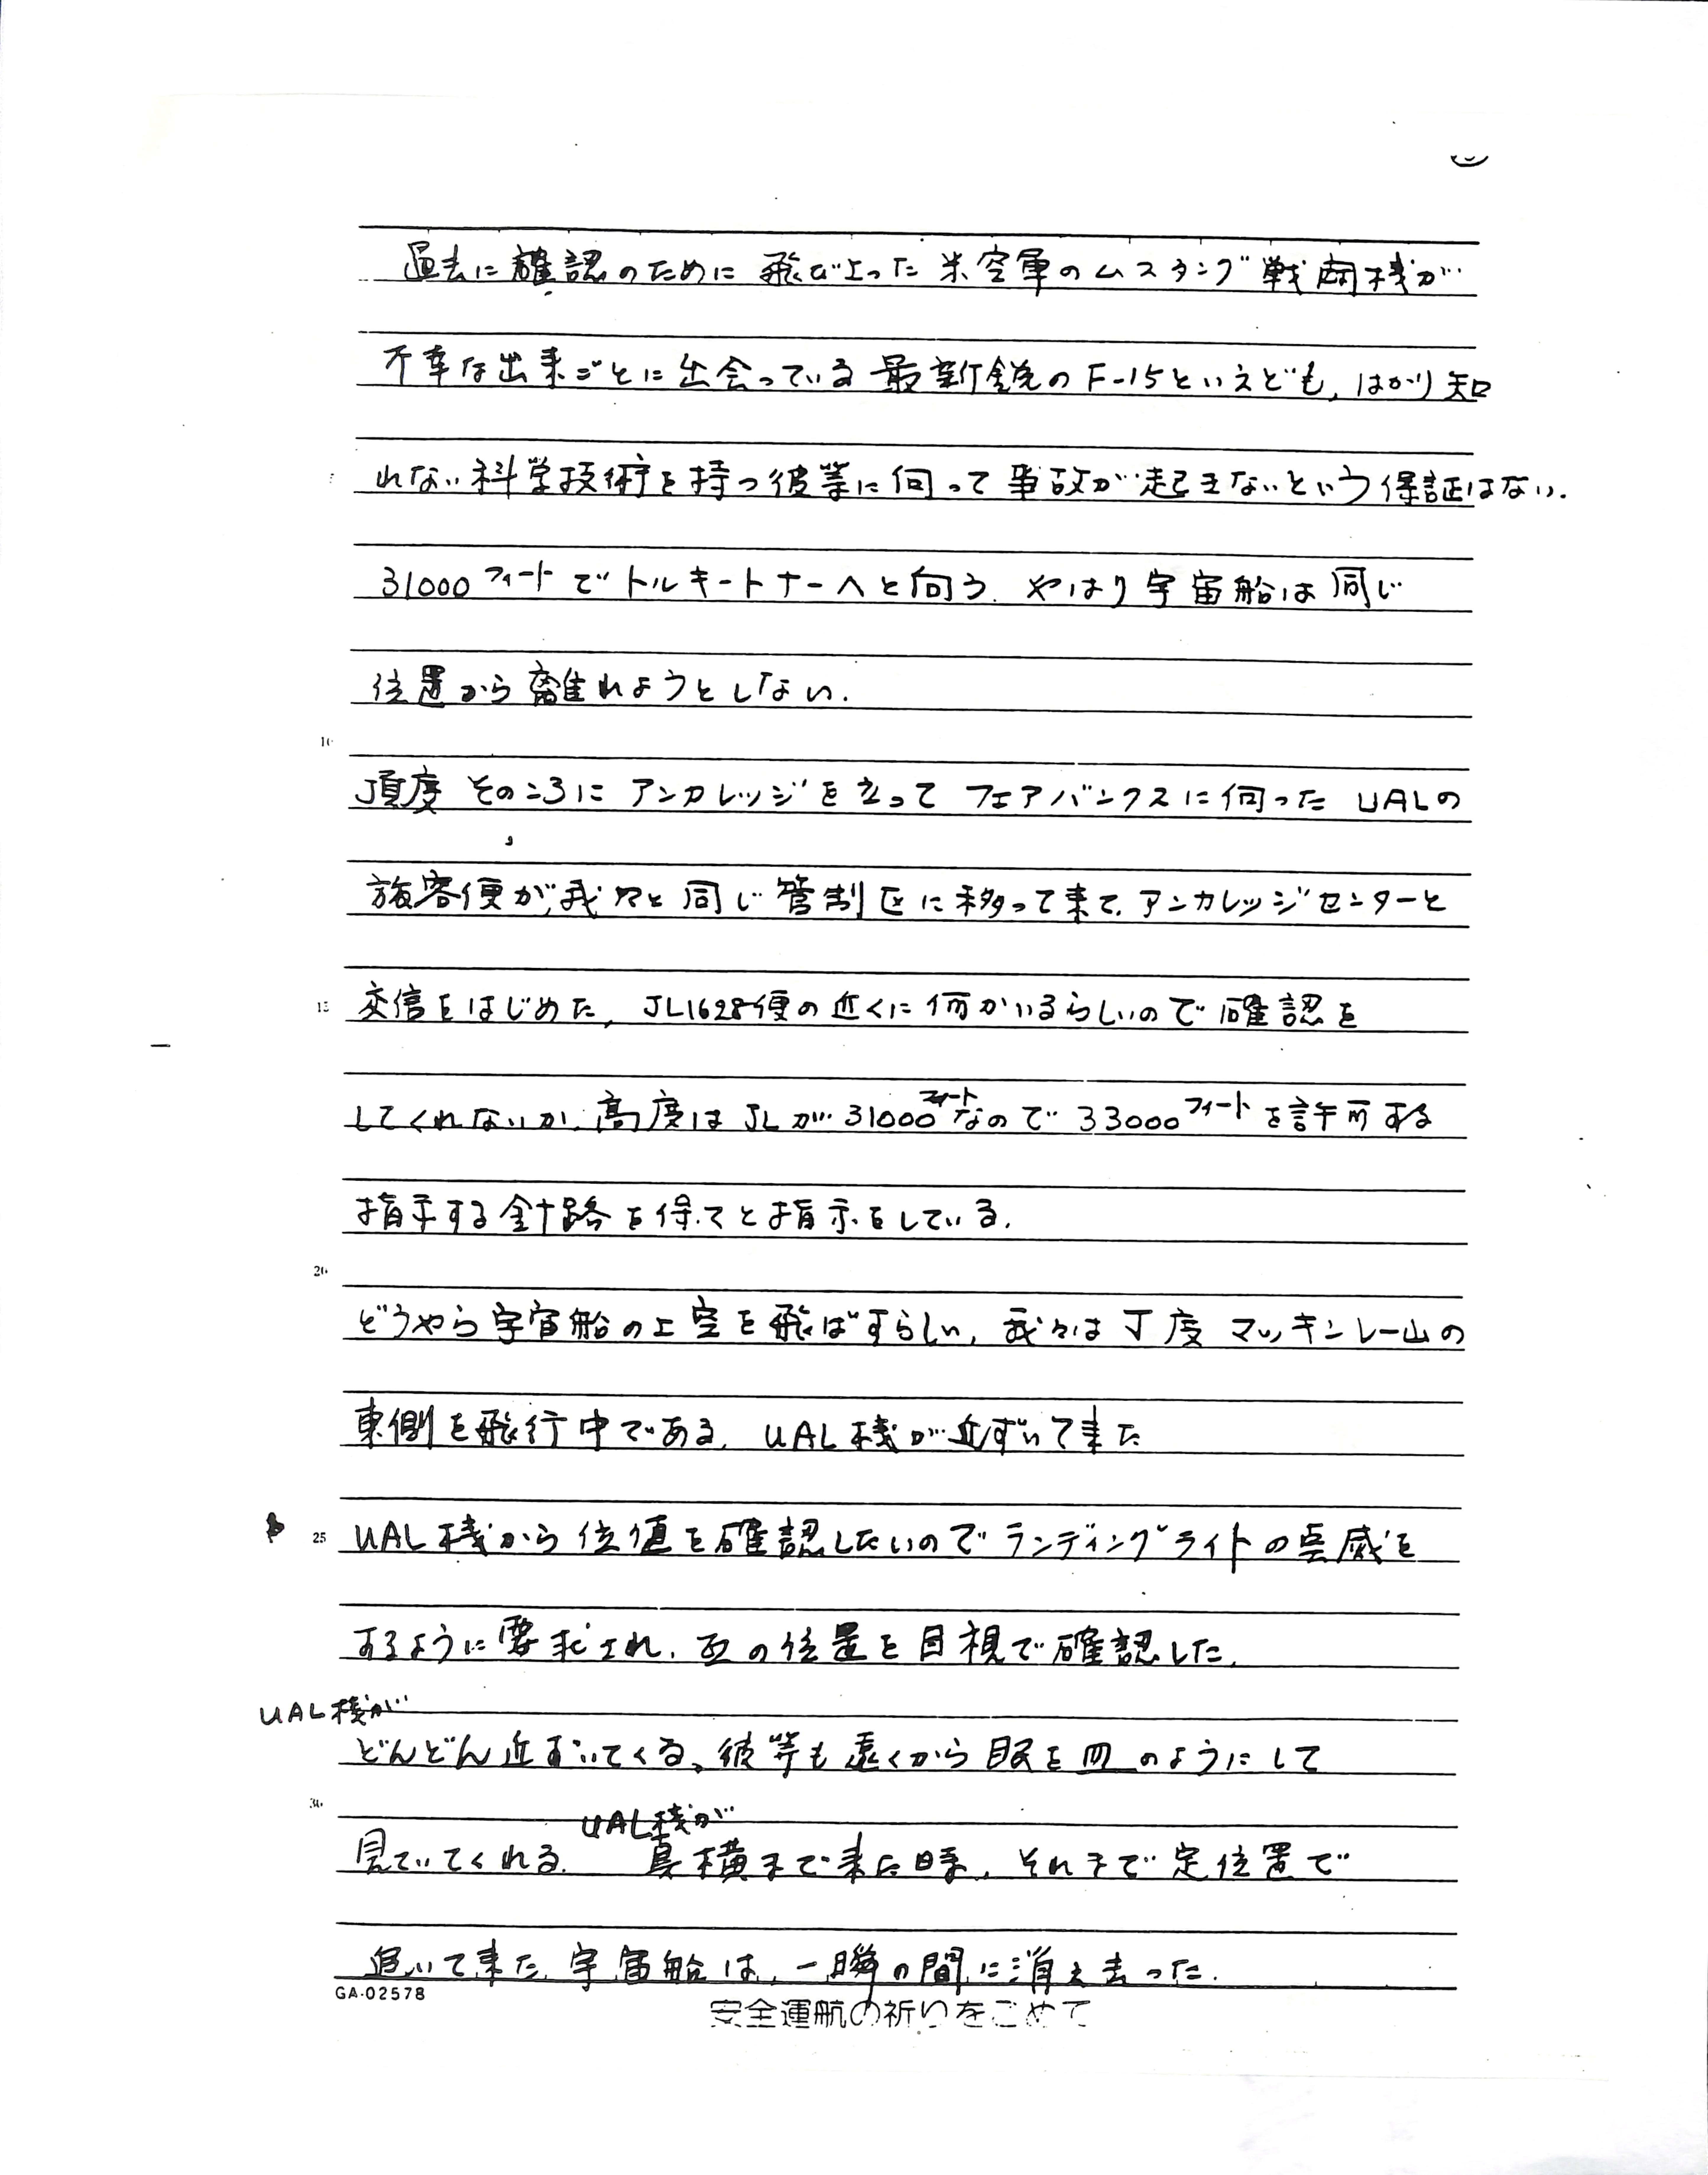 過去に確認のために飛び上った米空軍のムスタング戦闘機が
不幸な出来ごとに出会っている最新鋭のF-15といえども、はかり知
れない科学技術を持つ彼等に向って事故が起きないという保証はない.
31000フィートでトルキートナーへと向う. やはり宇宙船は同じ
位置から離れようとしない.
10
頂度そのころにアンカレッジを立ってフェアバンクスに向ったUALの
旅客便が、我々と同じ管制区に移って来て、アンカレッジセンターと
15 交信をはじめた, JL1628便の近くに何かいるらしいので確認を
してくれないか. 高度はJLが31000フィートなので33000フィートを許可する
指示する針路を保てと指示をしている.
20
どうやら宇宙船の上空を飛ばすらしい, 我々は丁度マッキンレー山の
東側を飛行中である. UAL機が近ずいて来た
25 UAL機から位値を確認したいのでランディングライトの点滅を
するように要求され. 互の位置を目視で確認した.
UAL機が
どんどん近ずいてくる、彼等も遠くから眼を皿のようにして
30
見ていてくれる. UAL機が真横まで来た時, それまで定位置で
追いて来た宇宙船は, 一瞬の間に消え去った.
GA-02578
安全運航の祈りをこめて